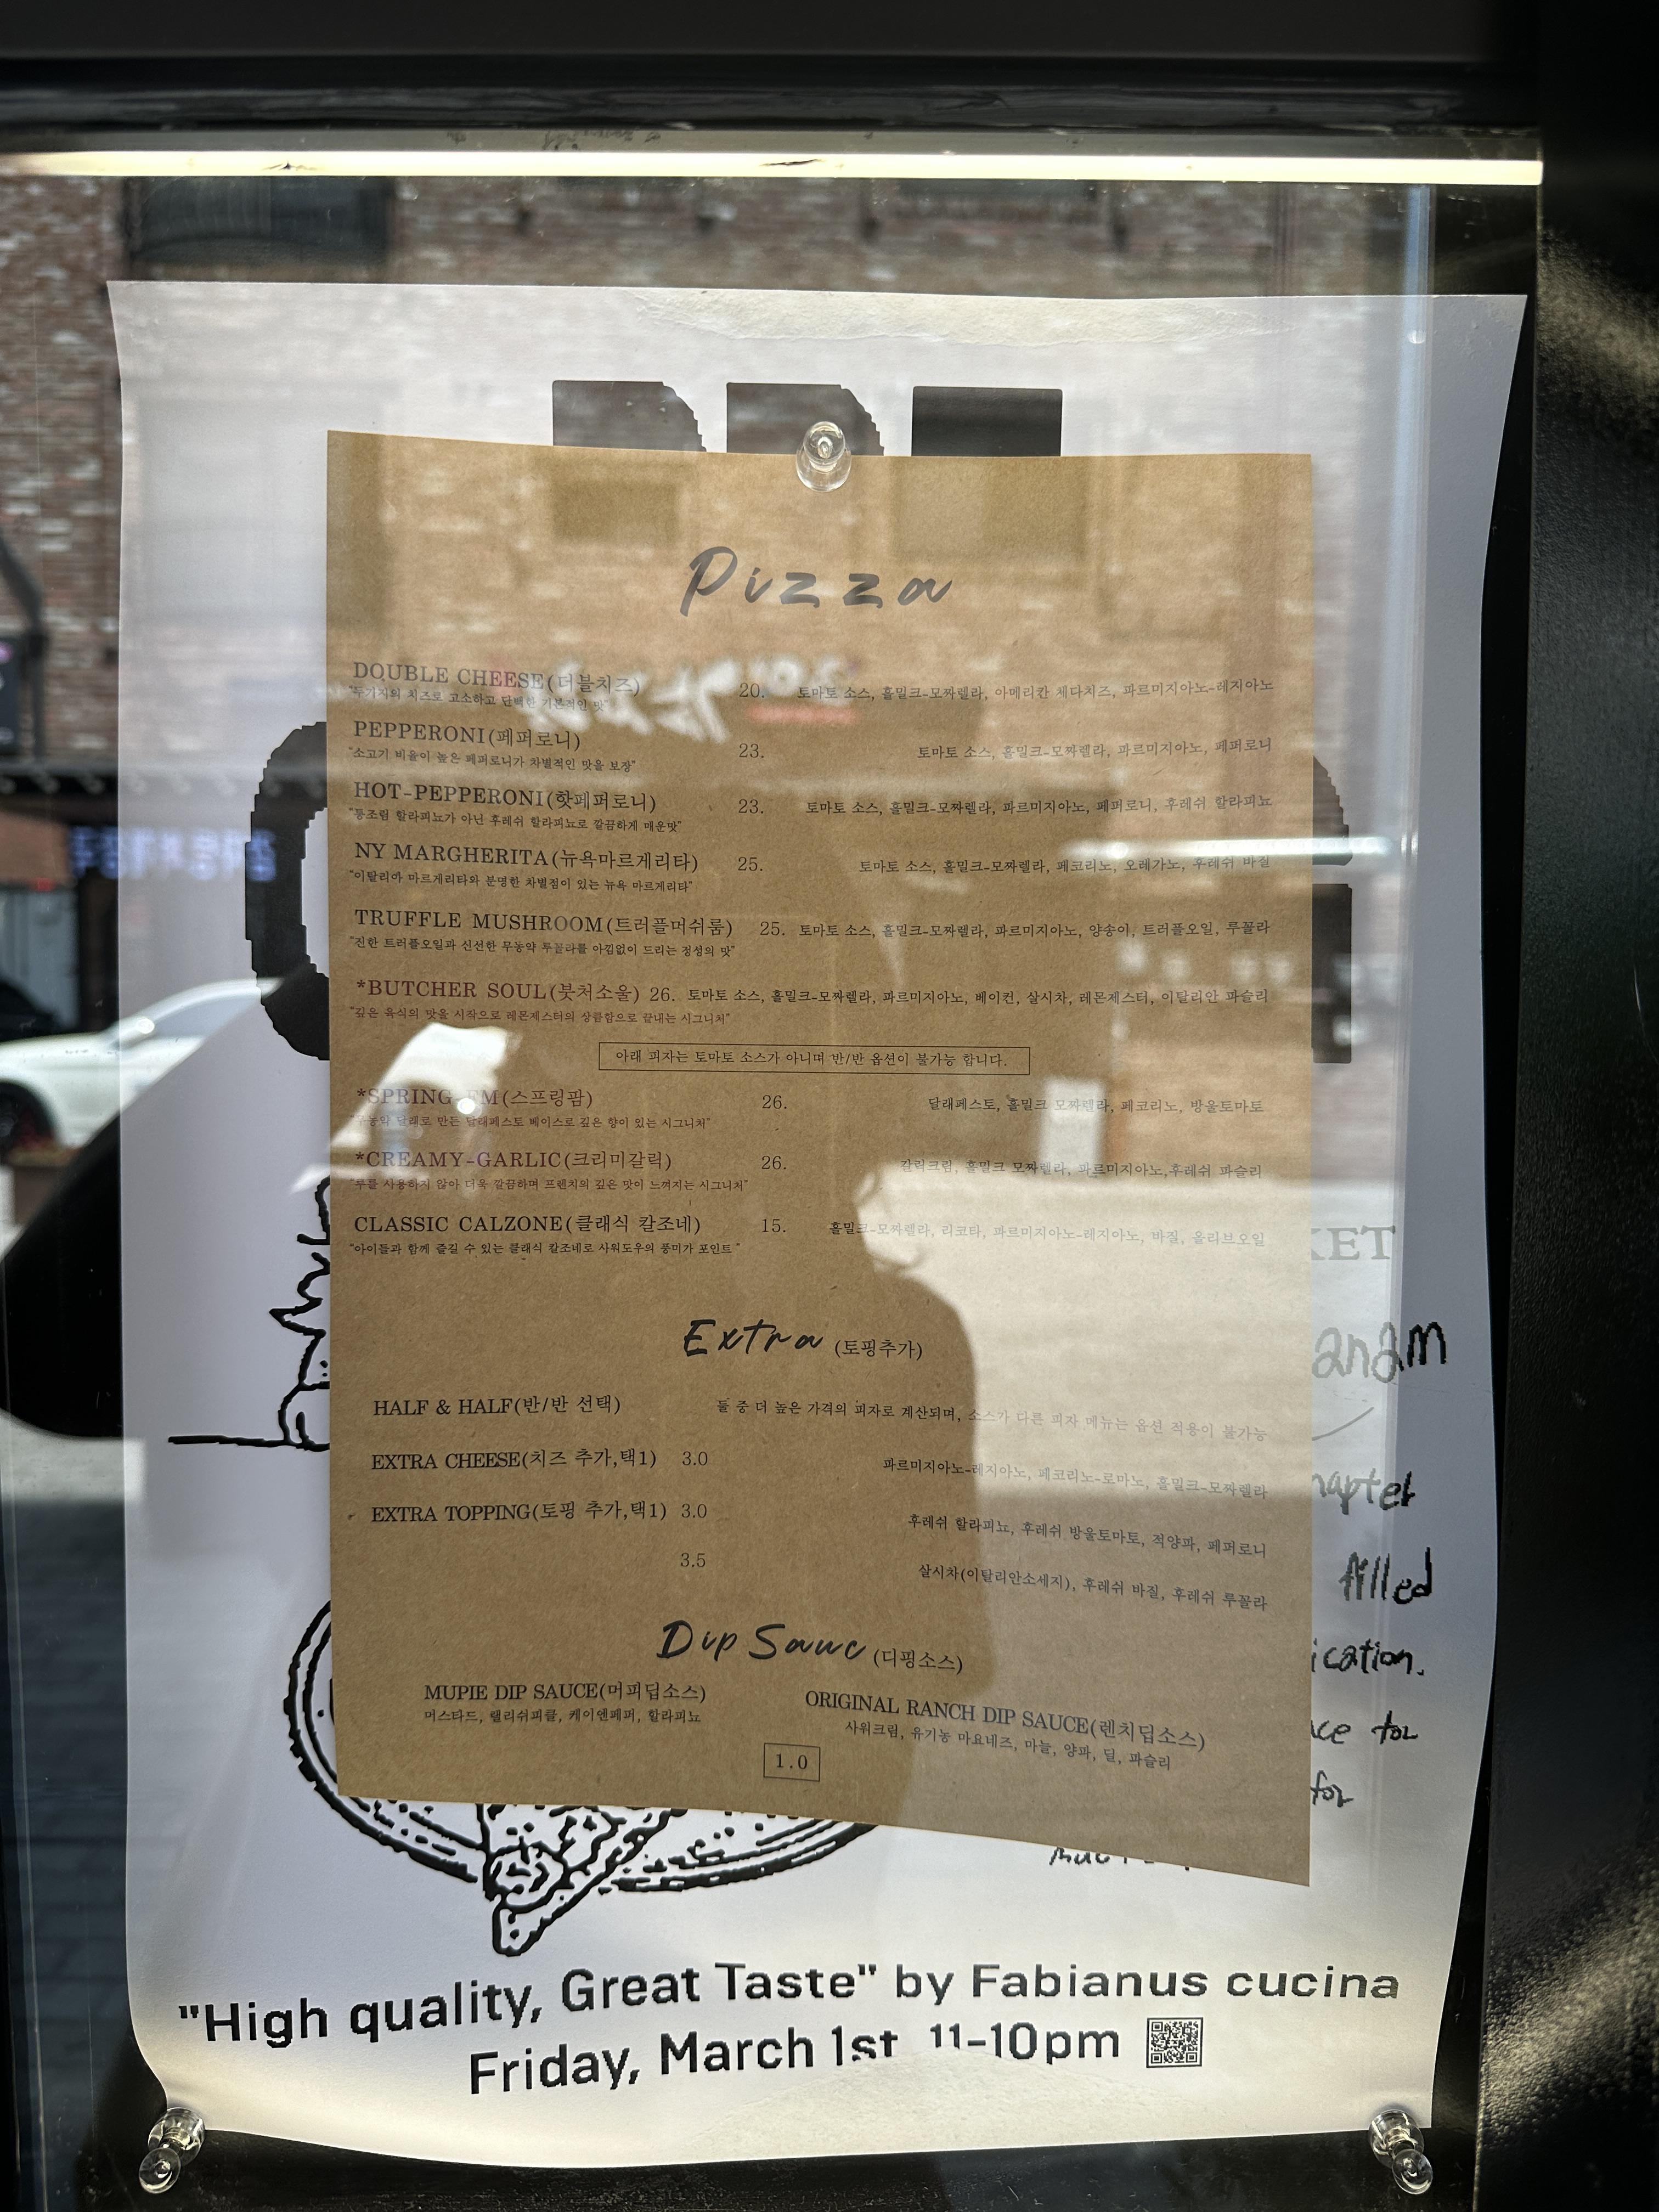 Pizza
DOUBLE CHEESE(더블치즈) 20. 토마토 소스, 홀밀크-모짜렐라, 아메리칸 체다치즈, 파르미지아노-레지아노
"두가지의 치즈로 고소하고 담백한 기본적인 맛"
PEPPERONI(페퍼로니) 23. 토마토 소스, 홀밀크-모짜렐라, 파르미지아노, 페퍼로니
"소고기 비율이 높은 페퍼로니가 차별적인 맛을 보장"
HOT-PEPPERONI(핫페퍼로니) 23. 토마토 소스, 홀밀크-모짜렐라, 파르미지아노, 페퍼로니, 후레쉬 할라피뇨
"통조림 할라피뇨가 아닌 후레쉬 할라피뇨로 깔끔하게 매운맛"
NY MARGHERITA(뉴욕마르게리타) 25. 토마토 소스, 홀밀크-모짜렐라, 페코리노, 오레가노, 후레쉬 바질
"이탈리아 마르게리타와 분명한 차별점이 있는 뉴욕 마르게리타"
TRUFFLE MUSHROOM(트러플머쉬룸) 25. 토마토 소스, 홀밀크-모짜렐라, 파르미지아노, 양송이, 트러플오일, 루꼴라
"진한 트러플오일과 신선한 무농약 루꼴라를 아낌없이 드리는 정성의 맛"
*BUTCHER SOUL(붓처소울) 26. 토마토 소스, 홀밀크-모짜렐라, 파르미지아노, 베이컨, 살시차, 레몬제스터, 이탈리안 파슬리
"깊은 육식의 맛을 시작으로 레몬제스터의 상큼함으로 끝내는 시그니처"
아래 피자는 토마토 소스가 아니며 반/반 옵션이 불가능 합니다.
*SPRING- FM(스프링팜) 26. 달래페스토, 홀밀크 모짜렐라, 페코리노, 방울토마토
"무농약 달래로 만든 달래페스토 베이스로 깊은 향이 있는 시그니처"
*CREAMY-GARLIC(크리미갈릭) 26. 갈릭크림, 홀밀크 모짜렐라, 파르미지아노,후레쉬 파슬리
"루를 사용하지 않아 더욱 깔끔하며 프렌치의 깊은 맛이 느껴지는 시그니처"
CLASSIC CALZONE(클래식 칼조네) 15. 홀밀크-모짜렐라, 리코타, 파르미지아노-레지아노, 바질, 올리브오일
"아이들과 함께 즐길 수 있는 클래식 칼조네로 사워도우의 풍미가 포인트 "
Extra (토핑추가)
HALF & HALF(반/반 선택) 둘 중 더 높은 가격의 피자로 계산되며, 소스가 다른 피자 메뉴는 옵션 적용이 불가능
EXTRA CHEESE(치즈 추가,택1) 3.0 파르미지아노-레지아노, 페코리노-로마노, 홀밀크-모짜렐라
EXTRA TOPPING(토핑 추가,택1) 3.0 후레쉬 할라피뇨, 후레쉬 방울토마토, 적양파, 페퍼로니
3.5 살시차(이탈리안소세지), 후레쉬 바질, 후레쉬 루꼴라
Dip Sauce (디핑소스)
MUPIE DIP SAUCE(머피딥소스)
머스타드, 랠리쉬피클, 케이엔페퍼, 할라피뇨
ORIGINAL RANCH DIP SAUCE(렌치딥소스)
사워크림, 유기농 마요네즈, 마늘, 양파, 딜, 파슬리
1.0
KET
anam
hapter
filled
ication.
ce for
for
"High quality, Great Taste" by Fabianus cucina
Friday, March 1st 11-10pm